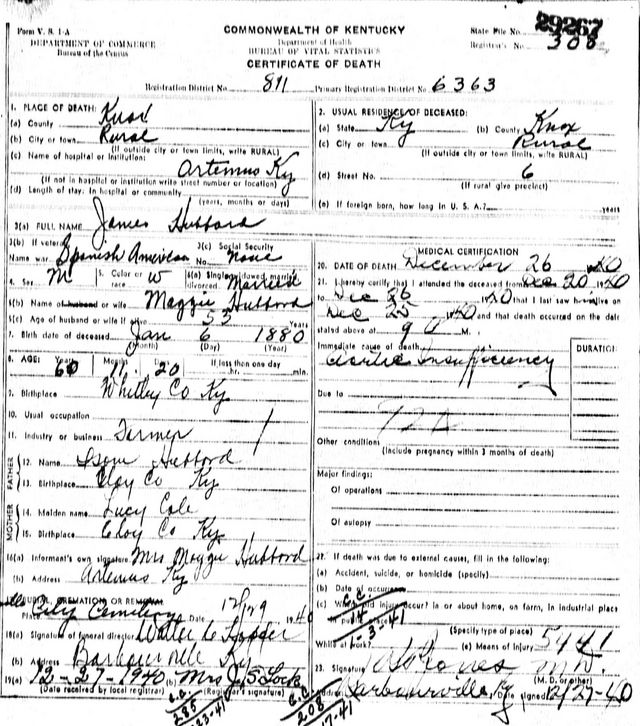 Form V. S. 1-A
DEPARTMENT OF COMMERCE
Bureau of the Census
COMMONWEALTH OF KENTUCKY
Department of Health
BUREAU OF VITAL STATISTICS
CERTIFICATE OF DEATH
State File No. 29267
Registrar's No. 308
Registration District No. 811 Primary Registration District No. 6363
1. PLACE OF DEATH:
(a) County Knox
(b) City or town Rural
(If outside city or town limits, write RURAL)
(c) Name of hospital or institution:
Artemus Ky
(If not in hospital or institution write street number or location)
(d) Length of stay: In hospital or community
(years, months or days)
2. USUAL RESIDENCE OF DECEASED:
(a) State Ky (b) County Knox
(c) City or town Rural
(If outside city or town limits, write RURAL)
(d) Street No. 6
(If rural give precinct)
(e) If foreign born, how long in U. S. A.? years
3(a) FULL NAME James Hubbard
3(b) If veteran Name war Spanish American 3(c) Social Security No. None
4. Sex M 5. Color or race W 6(a) Single, widowed, married, divorced Married
6(b) Name of husband or wife Maggie Hubbard
6(c) Age of husband or wife if alive 53 Years
7. Birth date of deceased Jan 6 1880
(Month) (Day) (Year)
8. AGE: Years 60 Months 11 Days 20 If less than one day hr. min.
9. Birthplace Whitley Co Ky
10. Usual occupation
11. Industry or business Farmer
FATHER
12. Name Isom Hubbard
13. Birthplace Clay Co Ky
MOTHER
14. Maiden name Lucy Cole
15. Birthplace Clay Co Ky
16(a) Informant's own signature Mrs Maggie Hubbard
(b) Address Artemus Ky
17. BURIAL, CREMATION OR REMOVAL
Place City Cemetery Date 12/29 1940
18(a) Signature of funeral director
(b) Address Barbourville Ky
19(a) 12-27-1940 (b) Mrs J S Lock
(Date received by local registrar) (Registrar's signature)
MEDICAL CERTIFICATION
20. DATE OF DEATH December 26 1940
21. I hereby certify that I attended the deceased from Dec 20 1940
to Dec 26 1940 that I last saw him alive on
Dec 25 1940 and that death occurred on the date
stated above at 9 a M.
Immediate cause of death DURATION
Aortic Insufficiency
Due to
Other conditions
(Include pregnancy within 3 months of death)
Major findings:
Of operations
Of autopsy
22. If death was due to external causes, fill in the following:
(a) Accident, suicide, or homicide (specify)
(b) Date of occurrence
(c) Where did injury occur? In or about home, on farm, in industrial place
in public place
(Specify type of place)
While at work? (e) Means of Injury
1-3-41
23. Signature M.D.
(M. D. or other)
Address Barbourville Ky Date signed 12/27-40
285
208